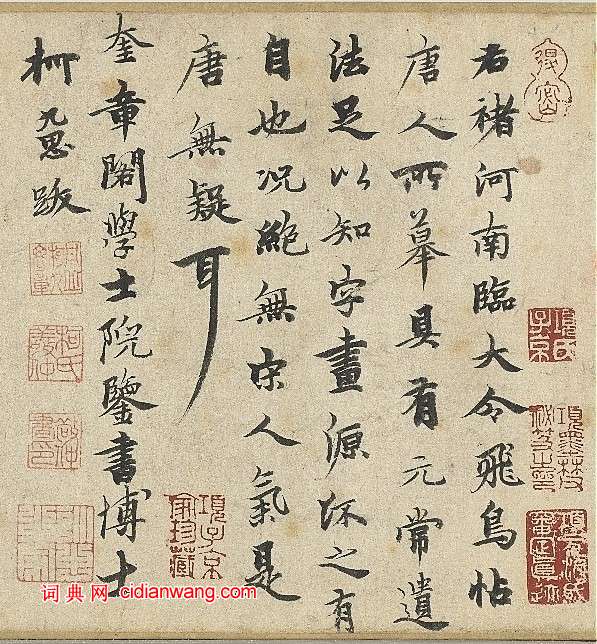 右褚河南臨大令飛鳥帖
唐人所摹具有元常遺
法足以知字畫源流之有
自也况絶無宋人氣是
唐無疑耳
奎章閣學士院鑒書博士
柯九思跋
項子京家珍藏
項氏子京
詞典网 cidianwang.com